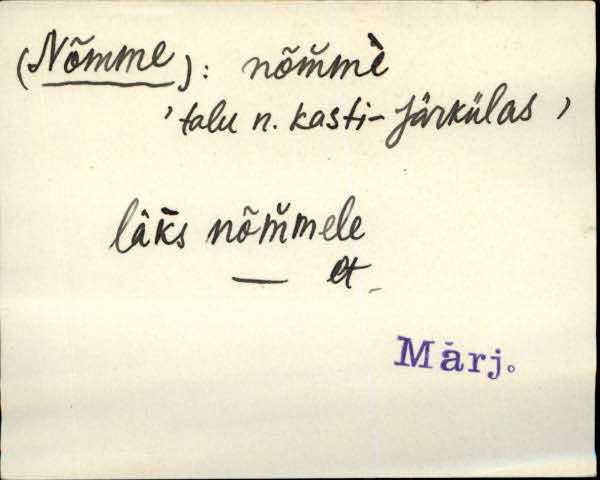 (Nõmme): nõm̆mè
' talu n. Kasti-Järkülas '
läk̆s nõm̆mele
— et
Märj.